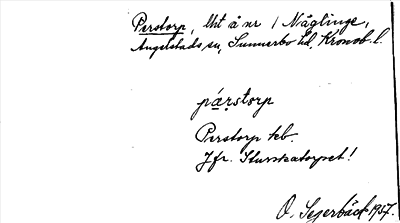 Perstorp, lht å nr 1 Näglinge,
Angelstads sn, Sunnerbo hd, Kronob. l.
pa̱ṛstorp
Perstorp heb.
Jfr. Sturkatorpet!
O. Sejerbäck 1957.